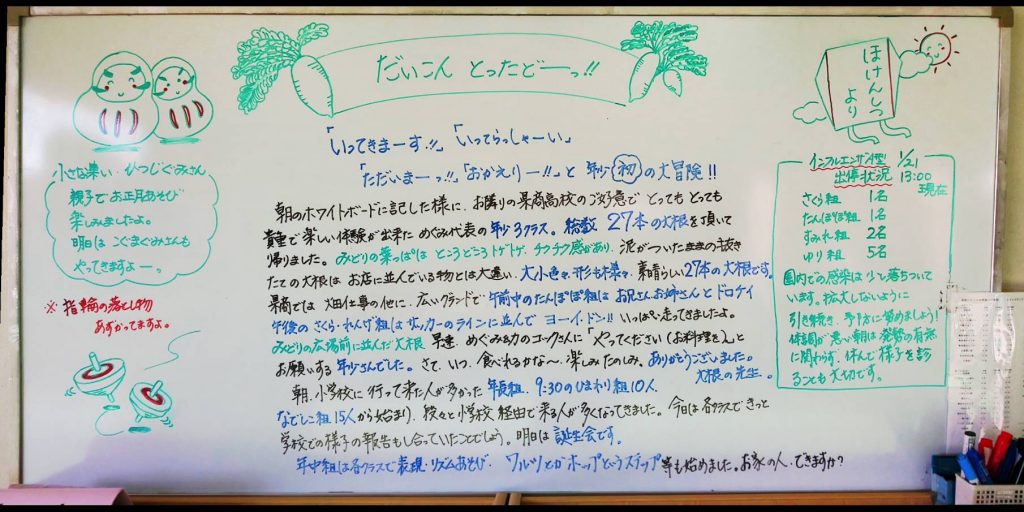 だいこん とったどーっ!!
「いってきまーす!!」「いってらっしゃーい」
「ただいまーっ!!」「おかえりー!!」と 年少 初 の大冒険!!
朝のホワイトボードに記した様に、お隣りの県商高校のご好意で とっても とっても
貴重で楽しい体験が出来た めぐみ代表の 年少3クラス。総数 27本の大根を頂いて
帰りました。みどりの葉っぱは ところどころトゲトゲ、チクチク感があり、泥がついたままの抜き
たての大根は お店に並んでいる物とは大違い、大小色々、形も様々、素晴らしい27本の大根です。
県商では 畑仕事の他に、広いグランドで 午前中のたんぽぽ組は お兄さんお姉さんとドロケイ
午後の さくら・れんげ組は サッカーのラインに並んで ヨーイ・ドン!! いっぱい走ってきましたよ。
みどりの広場前に並んだ大根 早速、めぐみ力のコックさんに「やってください(お料理を)」と
お願いする 年少さんでした。さて、いつ、食べれるかな〜、楽しみたのしみ、ありがとうございました。
大根の先生。
朝、小学校に 行って来た人が多かった 年長組、9:30のひまわり組10人、
なでしこ組 15人から始まり、段々と小学校経由で来る人が多くなってきました。今日は各クラスできっと
学校での様子の報告もし合っていたことでしょう。明日は 誕生会です。
年中組は各クラスで表現・リズムあそび、ワルツとかホップというステップ 等も始めました。お家の人、できますか?
小さな集い・ひつじぐみさん
親子でお正月あそび
楽しみましたよ。
明日は こぐまぐみさんも
やってきますよーっ
※ 指輪の落とし物
あずかってますよ。
ほけんしつ
より
インフルエンザA型 1/21
出停状況 13:00
現在
さくら組 1名
たんぽぽ組 1名
すみれ組 2名
ゆり組 5名
園内での感染は少し落ちついて
います。拡大しないように
引き続き、予防に努めましょう!
体調が悪い朝は発熱の有無
に関わらず、休んで様子を診
ることも大切です。